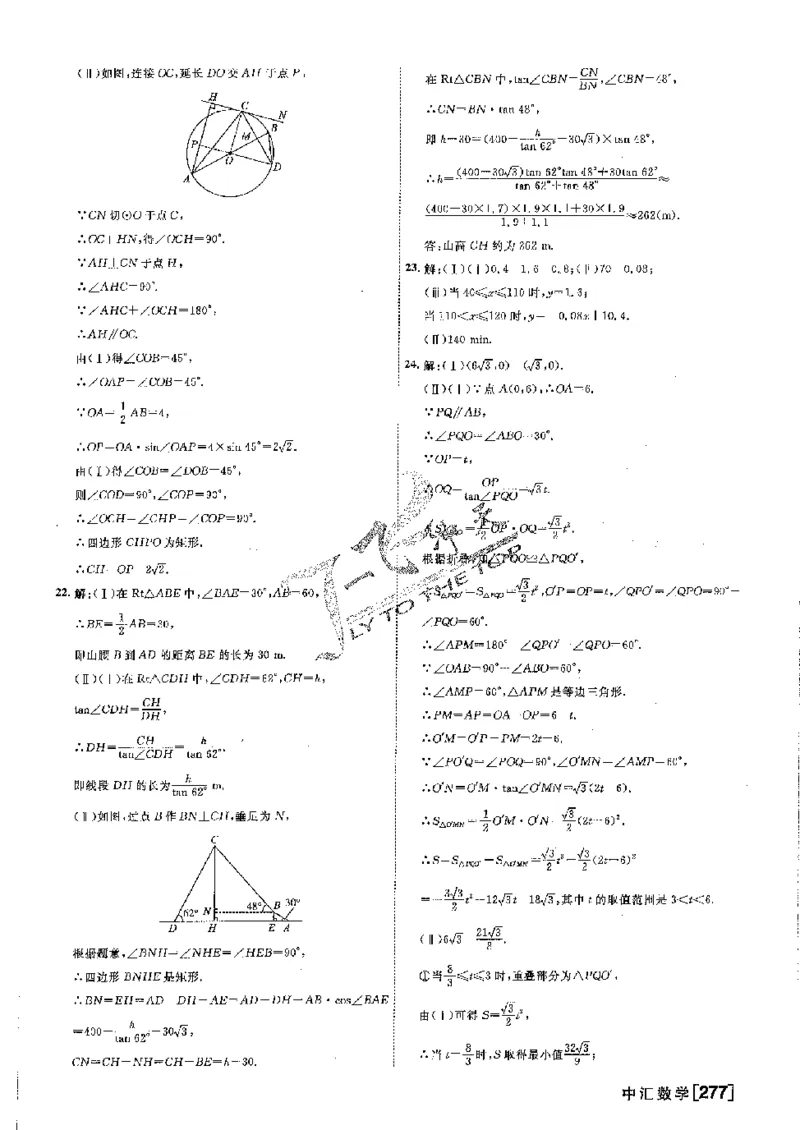 (Ⅱ)如图,连接 OC,延长 DO 交 AH 于点 P,
H
C
N
B
M
P
O
D
A
∵CN 切⊙O 于点 C,
∴OC⊥HN,得∠OCH=90°.
∵AH⊥CN 于点 H,
∴∠AHC=90°.
∵∠AHC+∠OCH=180°,
∴AH∥OC.
由(Ⅰ)得∠COB=45°,
∴∠OAP=∠COB=45°.
∵OA=1/2 AB=4,
∴OP=OA·sin∠OAP=4×sin 45°=2√2.
由(Ⅰ)得∠COB=∠DOB=45°,
则∠COD=90°,∠COP=90°,
∴∠OCH=∠CHP=∠COP=90°.
∴四边形 CHPO 为矩形.
∴CH=OP=2√2.
22. 解:(Ⅰ)在 Rt△ABE 中,∠BAE=30°,AB=60,
∴BE=1/2 AB=30,
即山腰 B 到 AD 的距离 BE 的长为 30 m.
(Ⅱ)(ⅰ)在 Rt△CDH 中,∠CDH=62°,CH=h,
tan∠CDH=CH/DH,
∴DH=CH/tan∠CDH=h/tan 62°,
即线段 DH 的长为 h/tan 62° m.
(ⅱ)如图,过点 B 作 BN⊥CH,垂足为 N,
C
62° N 48° B 30°
D H E A
根据题意,∠BNH=∠NHE=∠HEB=90°,
∴四边形 BNHE 是矩形.
∴BN=EH=AD-DH-AE=AD-DH-AB·cos∠BAE
=400-h/tan 62°-30√3,
CN=CH-NH=CH-BE=h-30.
在 Rt△CBN 中,tan∠CBN=CN/BN,∠CBN=48°,
∴CN=BN·tan 48°,
即 h-30=(400-h/tan 62°-30√3)×tan 48°,
∴h=(400-30√3)tan 62°tan 48°+30tan 62°/tan 62°+tan 48°≈
(400-30×1.7)×1.9×1.1+30×1.9/1.9+1.1≈262(m).
答:山高 CH 约为 262 m.
23. 解:(Ⅰ)(ⅰ)0.4 1.6 0.8;(ⅱ)70 0.08;
(ⅲ)当 40≤x≤110 时,y=1.6;
当 110<x≤120 时,y=-0.08x+10.4.
(Ⅱ)140 min.
24. 解:(Ⅰ)(6√3,0) (√3,0).
(Ⅱ)(ⅰ)∵点 A(0,6),∴OA=6.
∵PQ∥AB,
∴∠PQO=∠ABO=30°.
∵OP=t,
∴OQ=OP/tan∠PQO=√3t.
=1/2 OP·OQ=√3/2 t².
根据折叠,知△PQO≌△PQO′,
∴S△PQO′=S△PQO=√3/2 t²,O′P=OP=t,∠QPO′=∠QPO=90°-
∠PQO=60°.
∴∠APM=180°-∠QPO′-∠QPO=60°.
∵∠OAB=90°-∠ABO=60°,
∴∠AMP=60°,△APM 是等边三角形.
∴PM=AP=OA-OP=6-t.
∴O′M=O′P-PM=2t-6.
∵∠PO′Q=∠POQ=90°,∠O′MN=∠AMP=60°,
∴O′N=O′M·tan∠O′MN=√3(2t-6).
∴S△O′MN=1/2 O′M·O′N=√3/2(2t-6)².
∴S=S△PQO′-S△O′MN=√3/2 t²-√3/2(2t-6)²
=-3√3/2 t²+12√3t-18√3,其中 t 的取值范围是 3<t<6.
(ⅱ)6√3 21√3/8.
①当 8/3≤t≤3 时,重叠部分为△PQO′,
由(ⅰ)可得 S=√3/2 t²,
∴当 t=8/3 时,S 取得最小值 32√3/9;
中汇数学[277]